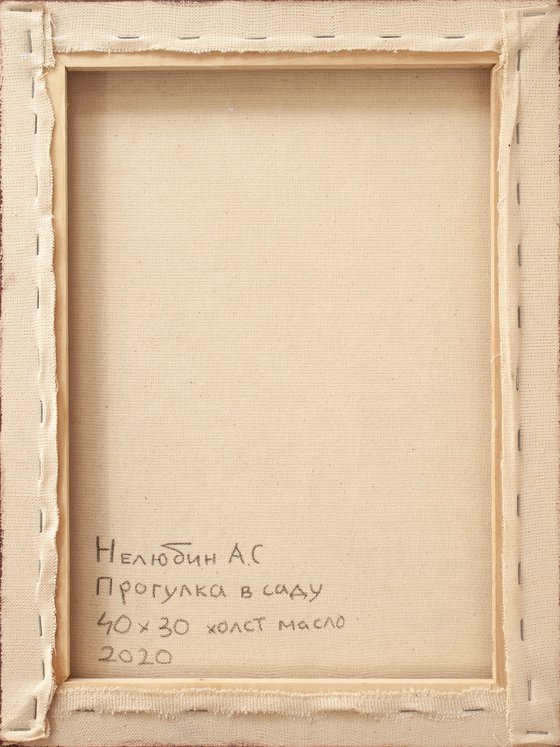 Нелюбин А.С
Прогулка в саду
40х30 холст масло
2020